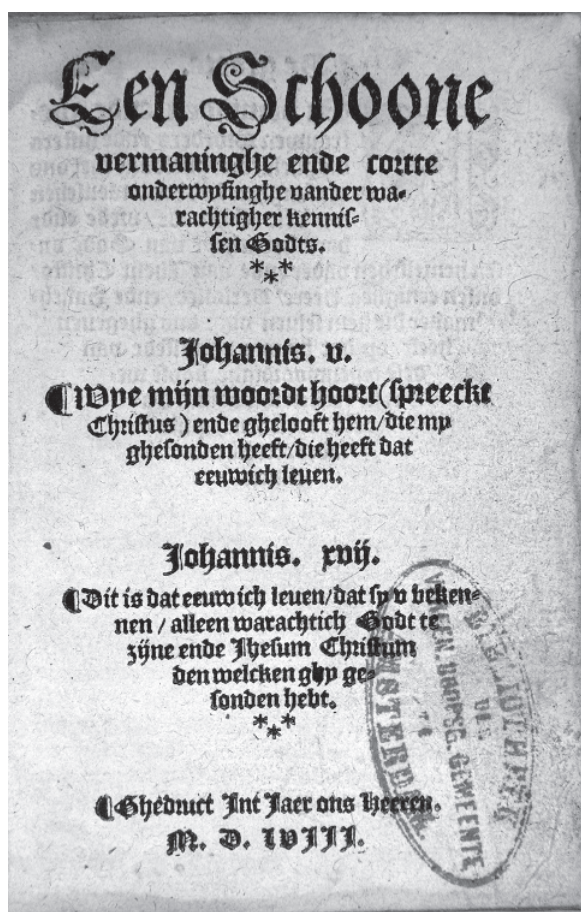 Een Schoone
vermaninghe ende cortte
onderwysinghe vander wa-
rachtigher kennis-
sen Godts.
***
Johannis. v.
¶ Wye mijn woordt hoort (spreeckt
Christus) ende ghelooft hem/die my
ghesonden heeft/die heeft dat
eeuwich leuen.
Johannis. xvij.
¶ Dit is dat eeuwich leuen/dat sy v beken-
nen / alleen warachtich Godt te
zijne ende Jhesum Christum
den welcken ghy ge-
sonden hebt.
***
¶ Ghedruct Int Jaer ons Heeren.
M. D. LVIII.
BIBLIOTHEEK
DER
DOOPSG. GEMEENTE
TE
AMSTERDAM